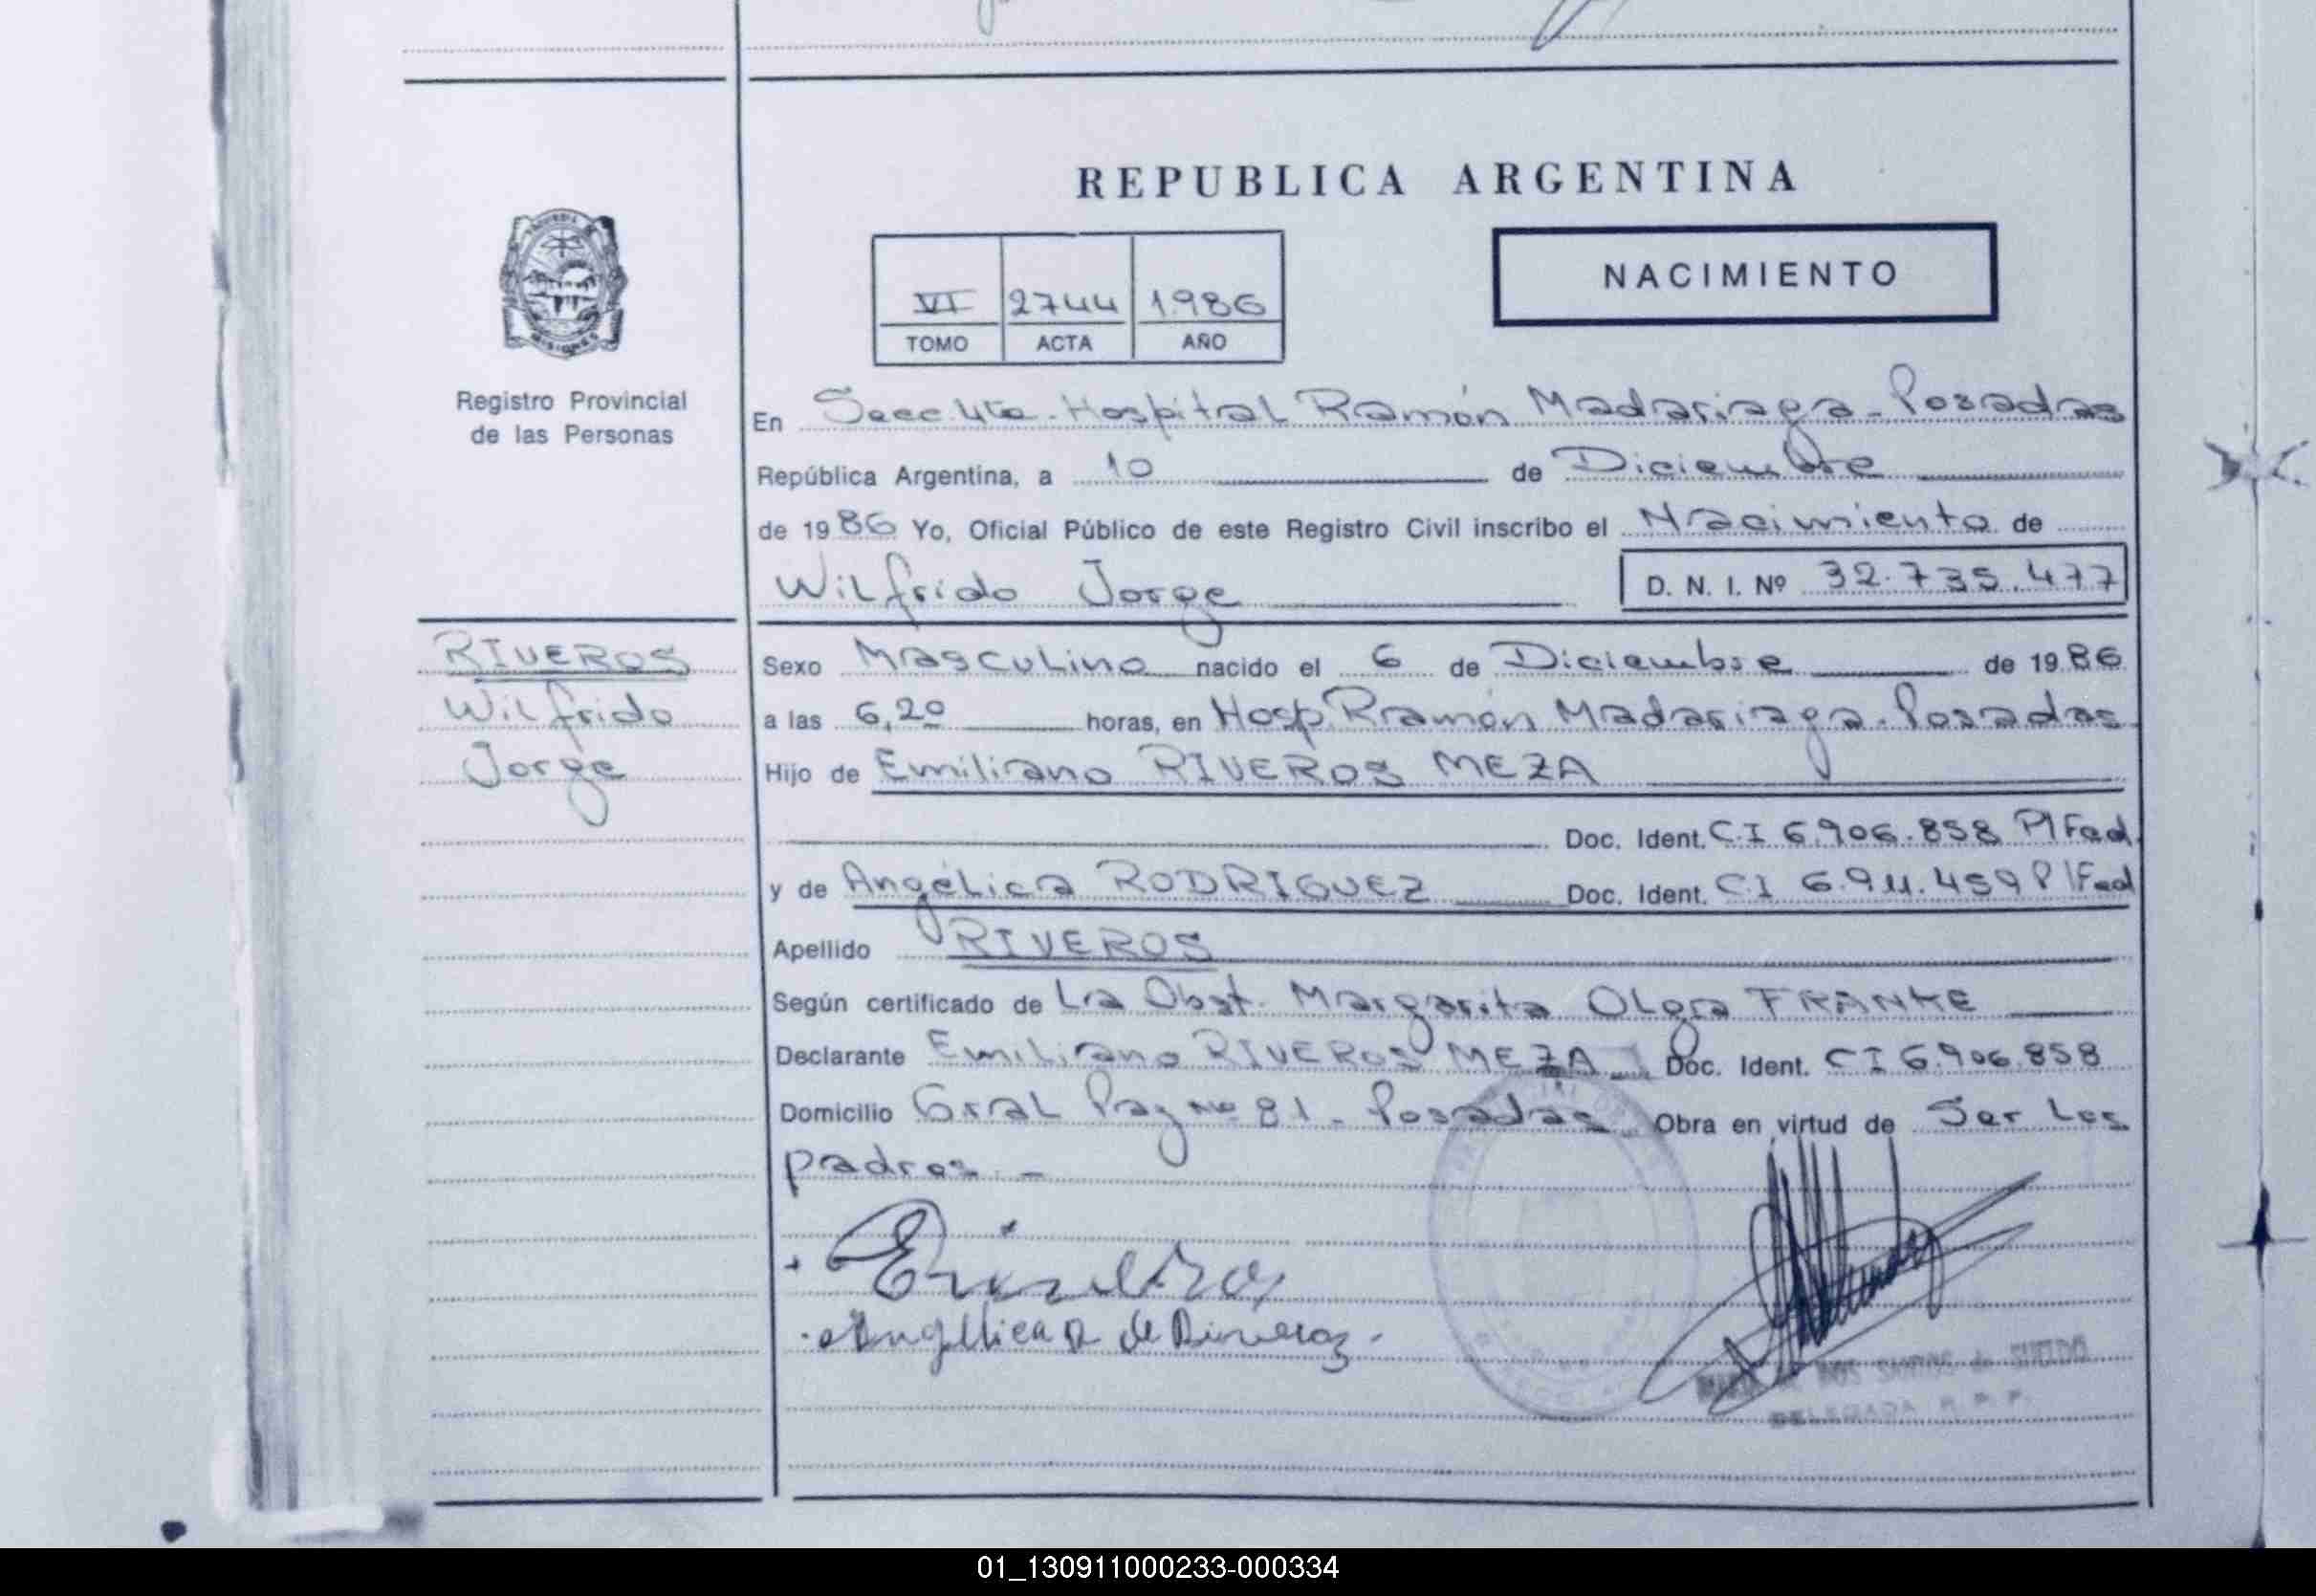 REPUBLICA ARGENTINA
NACIMIENTO
VI 2744 1986
TOMO ACTA AÑO
Registro Provincial
de las Personas
En Secc 4ta - Hospital Ramón Madariaga - Posadas
República Argentina, a 10 de Diciembre
de 1986 Yo, Oficial Público de este Registro Civil inscribo el Nacimiento de
Wilfrido Jorge D. N. I. Nº 32.735.477
RIVEROS
Wilfrido
Jorge
Sexo Masculino nacido el 6 de Diciembre de 1986
a las 6,20 horas, en Hosp. Ramón Madariaga - Posadas
Hijo de Emiliano RIVEROS MEZA
Doc. Ident. C.I 6.906.858 P/Fed.
y de Angélica RODRIGUEZ Doc. Ident. C.I 6.911.459 P/Fed
Apellido RIVEROS
Según certificado de La Obst. Margarita Olga FRANKE
Declarante Emiliano RIVEROS MEZA Doc. Ident. CI 6.906.858
Domicilio Gral Paz Nº 81 - Posadas Obra en virtud de Ser Los
padres. -
Angelica R de Riveros
DOS SANTOS de
DELEGADA R. P. P.
01_130911000233-000334